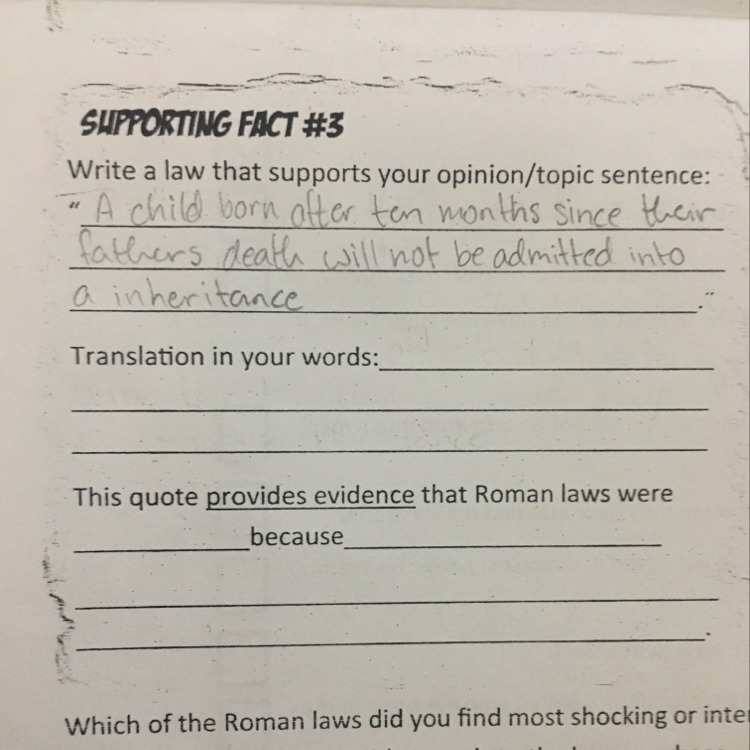 SUPPORTING FACT #3
Write a law that supports your opinion/topic sentence:
" A child born after ten months since their
fathers death will not be admitted into
a inheritance ."
Translation in your words:
This quote provides evidence that Roman laws were
because
.
Which of the Roman laws did you find most shocking or inte